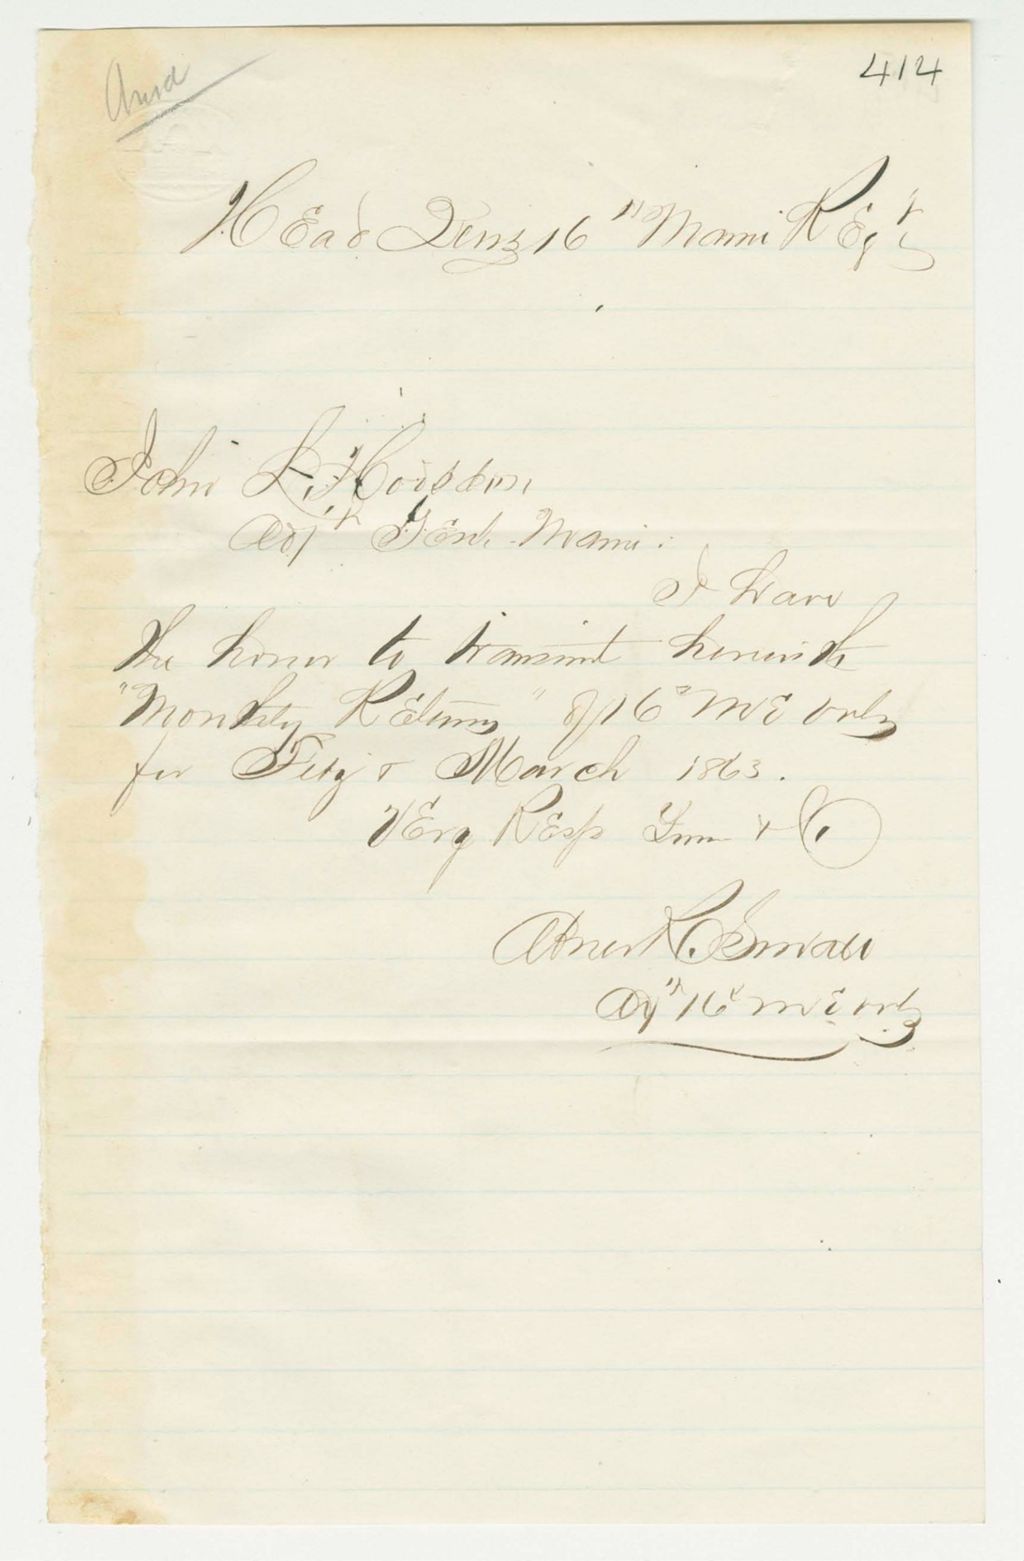 414
Head Qurs 16" Maine Regt
John L. Hodsdon,
Adjt Genl. Maine:
I have
the honor to transmit herewith
"Monthly Returns" of 16" Me Vols
for Feby & March 1863.
Very Resp Yours &c
Abner R. Small
Adjt 16" Me Vols